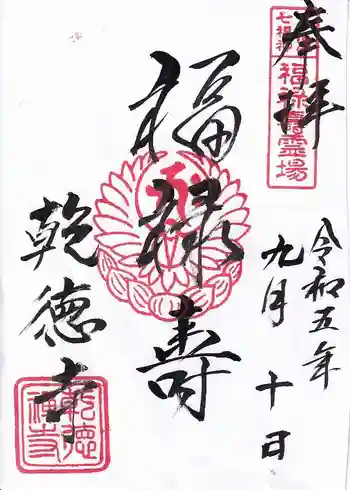 奉拝
七福神
福禄寿霊場
令和五年
九月十日
福禄寿
乾徳寺
乾徳禅寺